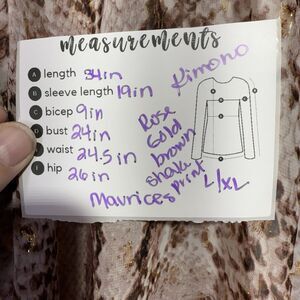 measurements
A length 34in
B sleeve length 19in
C bicep 9in
D bust 24in
E waist 24.5in
F hip 26in
Kimono
Rose
Gold
brown
snake
print L/XL
Maurices